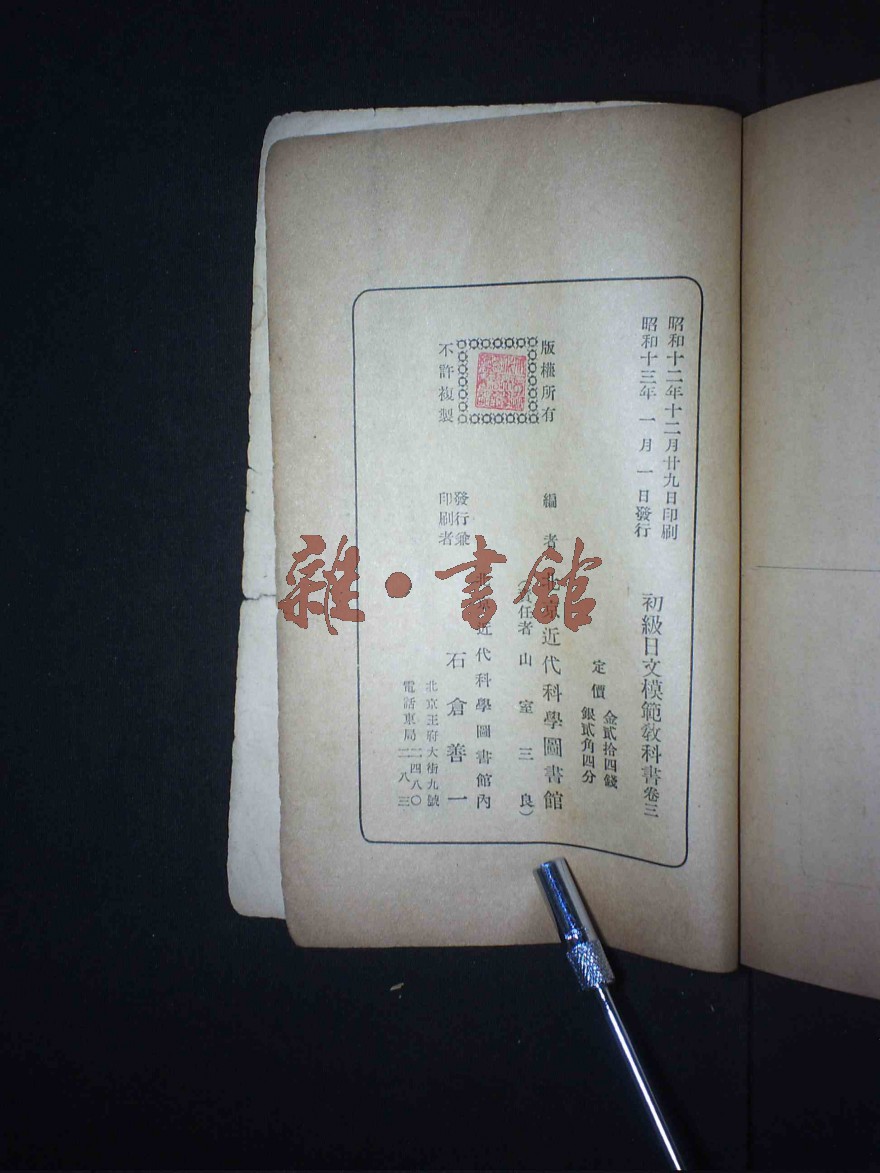 昭和十二年十二月廿九日印刷
昭和十三年一月一日發行
初級日文模範敎科書卷三
定價 金貳拾四錢
銀貳角四分
版權所有
不許複製
編者 北京近代科學圖書館
(責任者 山室三良)
發行兼
印刷者
北京近代科學圖書館內
石倉善一
北京王府大街九號
電話東局 二四八〇
二八三
雜·書館